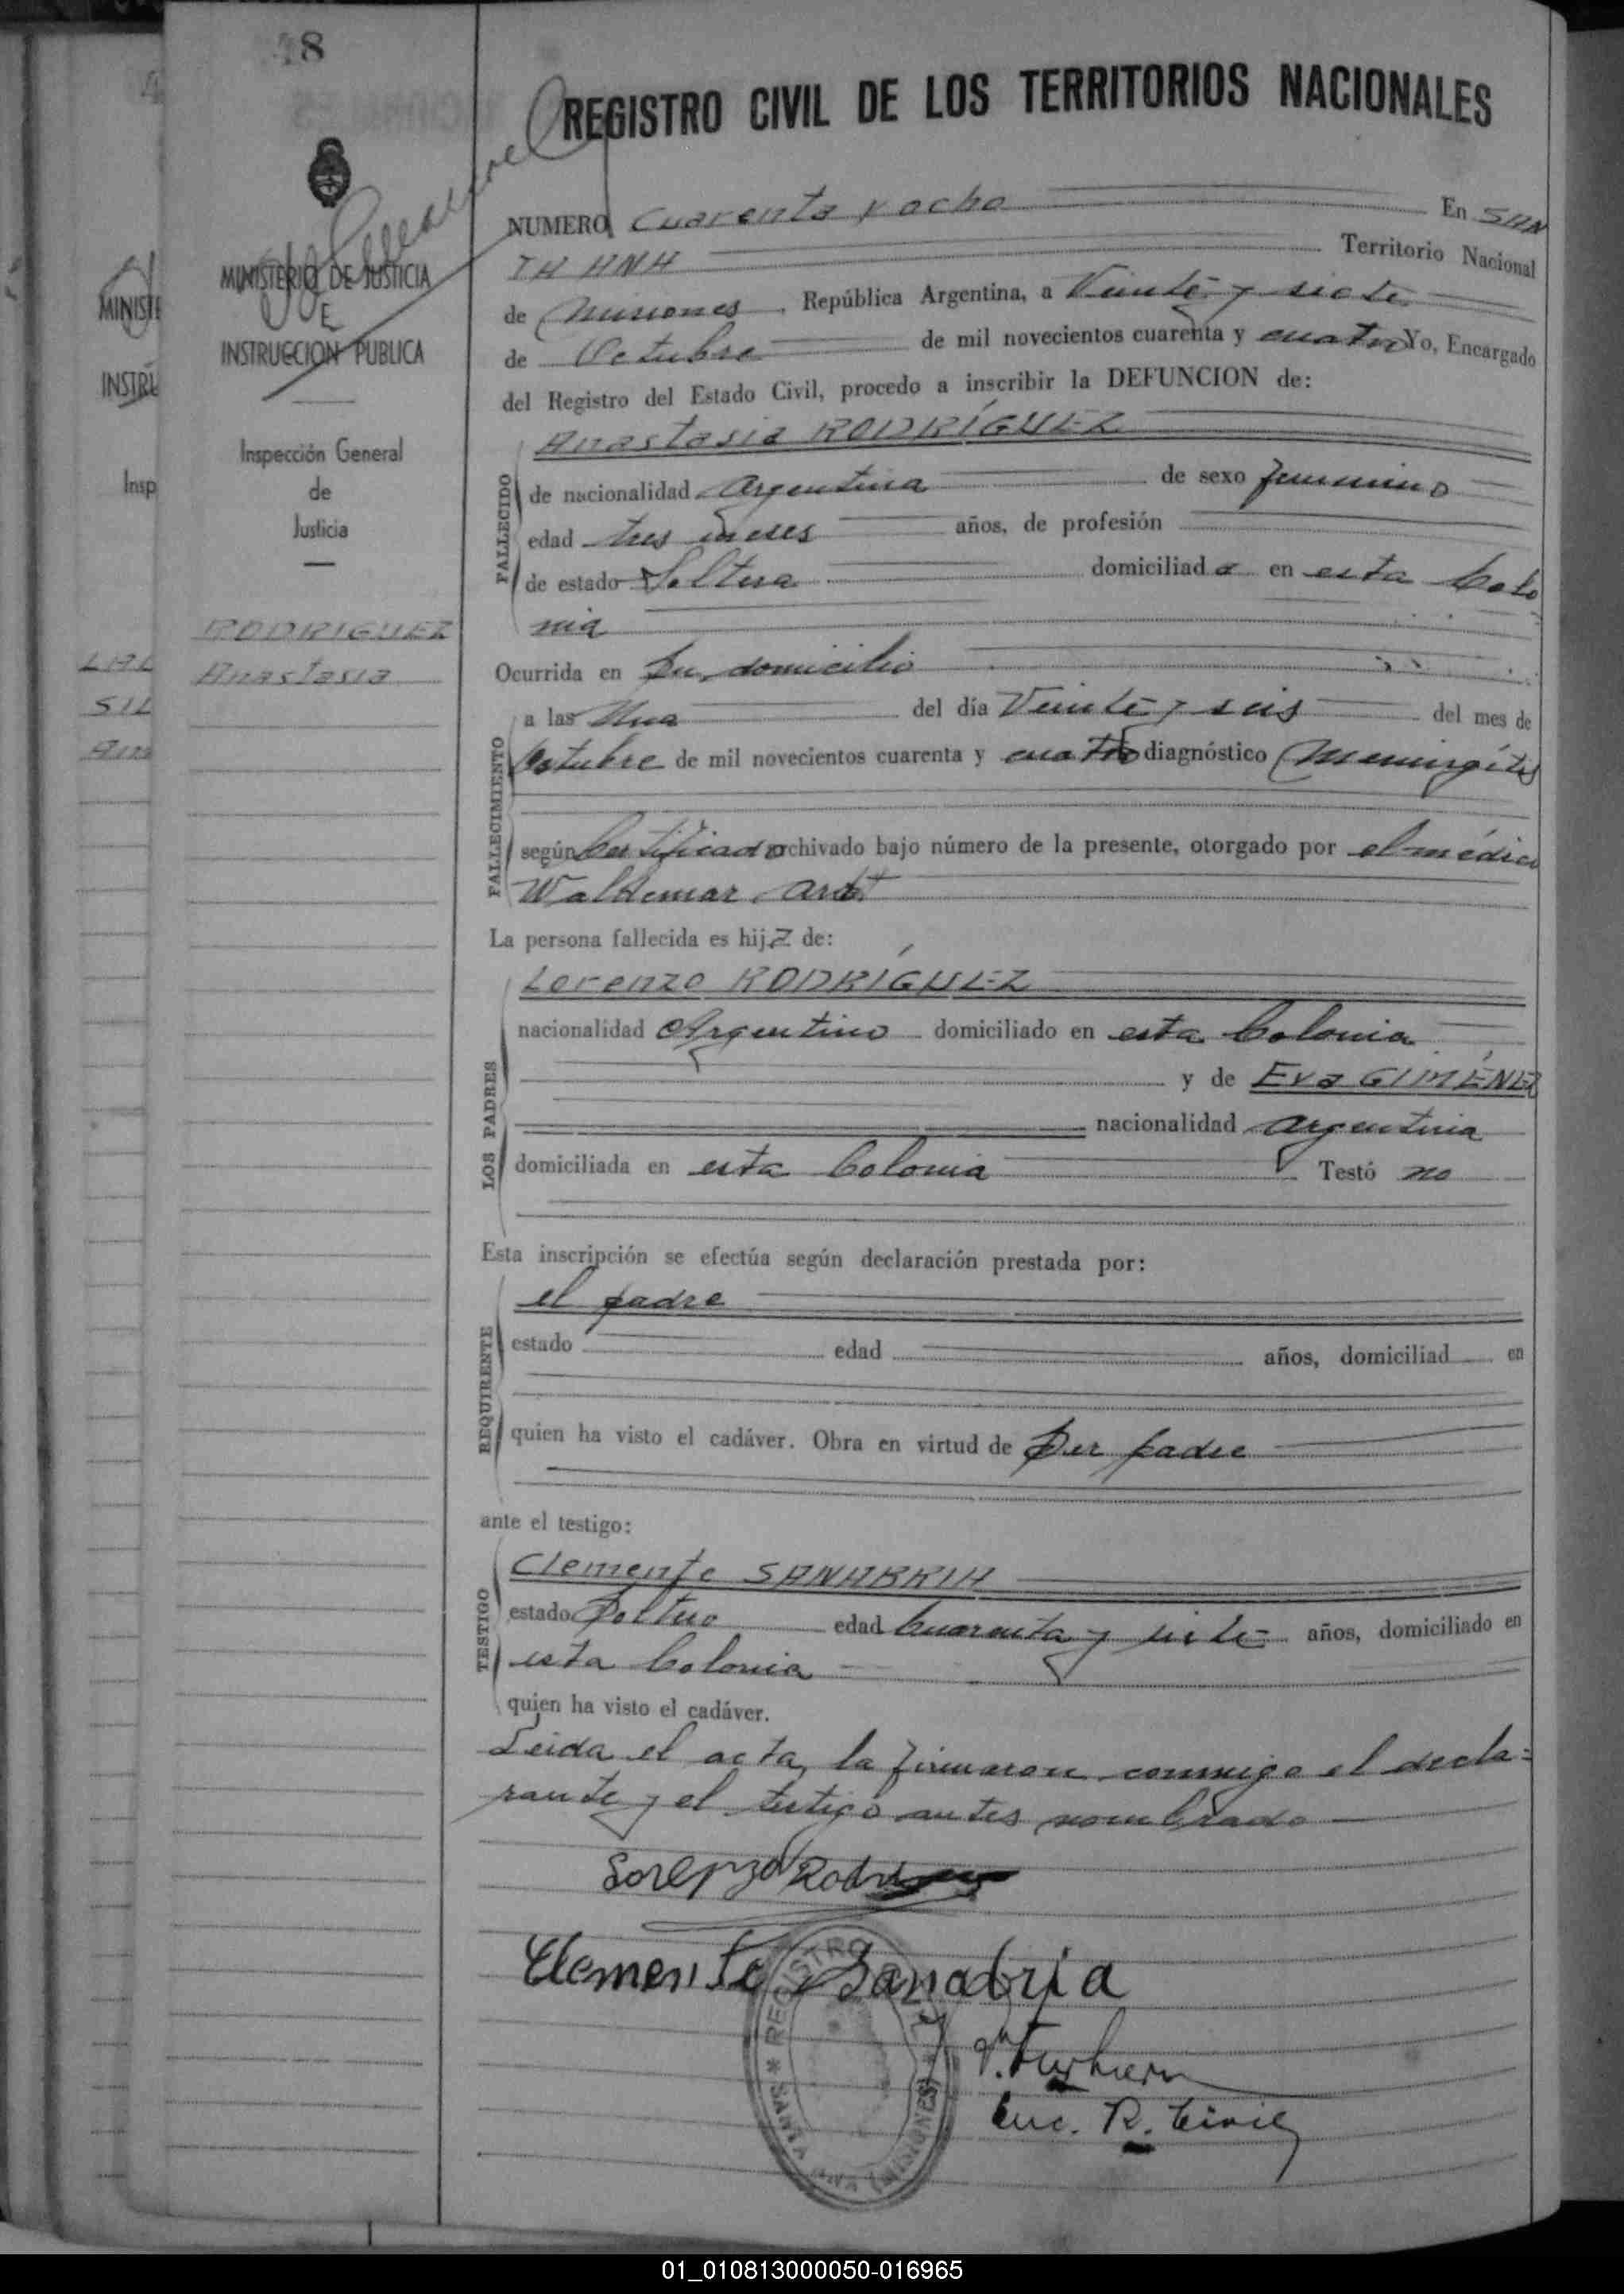 48
REGISTRO CIVIL DE LOS TERRITORIOS NACIONALES
MINISTERIO DE JUSTICIA
E
INSTRUCCION PUBLICA
Inspección General
de
Justicia
RODRIGUEZ
Anastasia
NUMERO Cuarenta y ocho En SAN
TA ANA Territorio Nacional
de Misiones, República Argentina, a Veinte y siete
de Octubre de mil novecientos cuarenta y cuatro Yo, Encargado
del Registro del Estado Civil, procedo a inscribir la DEFUNCION de:
FALLECIDO
Anastasia RODRÍGUEZ
de nacionalidad Argentina de sexo femenino
edad tres meses años, de profesión
de estado Soltera domiciliada en esta Colo
nia
Ocurrida en Su domicilio
FALLECIMIENTO
a las Una del día Veinte y seis del mes de
Octubre de mil novecientos cuarenta y cuatro diagnóstico Meningítis
según Certificado archivado bajo número de la presente, otorgado por el médico
Waldemar
La persona fallecida es hija de:
LOS PADRES
Lorenzo RODRÍGUEZ
nacionalidad Argentino domiciliado en esta Colonia
y de Eva GIMÉNEZ
nacionalidad Argentina
domiciliada en esta Colonia Testó no
Esta inscripción se efectúa según declaración prestada por:
REQUIRENTE
el padre
estado edad años, domiciliad en
quien ha visto el cadáver. Obra en virtud de Ser padre
ante el testigo:
TESTIGO
Clemente SANABRIA
estado Soltero edad Cuarenta y siete años, domiciliado en
esta Colonia
quien ha visto el cadáver.
Leida el acta, la firmaron conmigo el decla=
rante y el testigo antes nombrado
Lorenzo Rodriguez
Clemente Sanabria
REGISTRO
SANTA ANA (MISIONES)
Enc. R. Civil
MINISTE
INSTRU
Insp
SIL
01_010813000050-016965